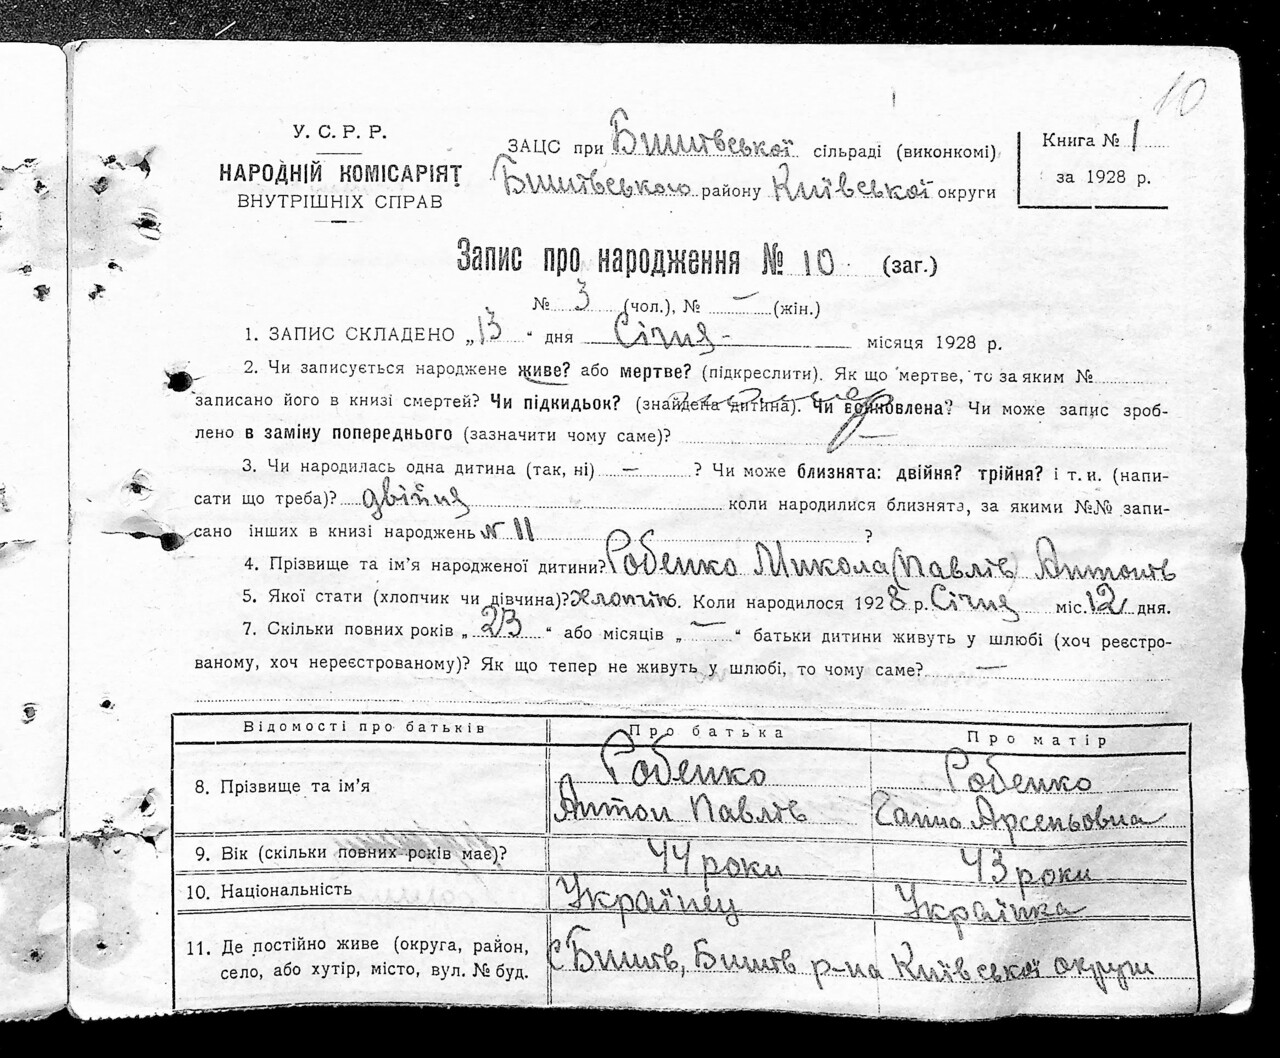 10
У. С. Р. Р.
НАРОДНІЙ КОМІСАРІЯТ
ВНУТРІШНІХ СПРАВ
ЗАЦС при Бишівської сільраді (виконкомі)
Бишівського району Київської округи
Книга № 1
за 1928 р.
Запис про народження № 10 (заг.)
№ 3 (чол.), № — (жін.)
1. ЗАПИС СКЛАДЕНО „13“ дня Січня - місяця 1928 р.
2. Чи записується народжене живе? або мертве? (підкреслити). Як що мертве, то за яким №
записано його в книзі смертей? Чи підкидьок? (знайдена дитина). Чи вcиновлена? Чи може запис зроб-
лено в заміну попереднього (зазначити чому саме)? —
3. Чи народилась одна дитина (так, ні) — ? Чи може близнята: двійня? трійня? і т. и. (напи-
сати що треба)? двійня коли народилися близнята, за якими №№ запи-
сано інших в книзі народжень № 11 ?
4. Прізвище та ім'я народженої дитини? Робенко Микола (Павлів) Антонів
5. Якої стати (хлопчик чи дівчина)? Хлопчик. Коли народилося 1928 р. Січня міс. 12 дня.
7. Скільки повних років „23“ або місяців „—“ батьки дитини живуть у шлюбі (хоч реєстро-
ваному, хоч нереєстрованому)? Як що тепер не живуть у шлюбі, то чому саме? —
Відомості про батьків Про батька Про матір
8. Прізвище та ім'я Робенко Антон Павлів Робенко Ганна Арсеньовна
9. Вік (скільки повних років має)? 44 роки 43 роки
10. Національність Українец Українка
11. Де постійно живе (округа, район,
село, або хутір, місто, вул. № буд. С Бишів, Бишів р-на Київської округи